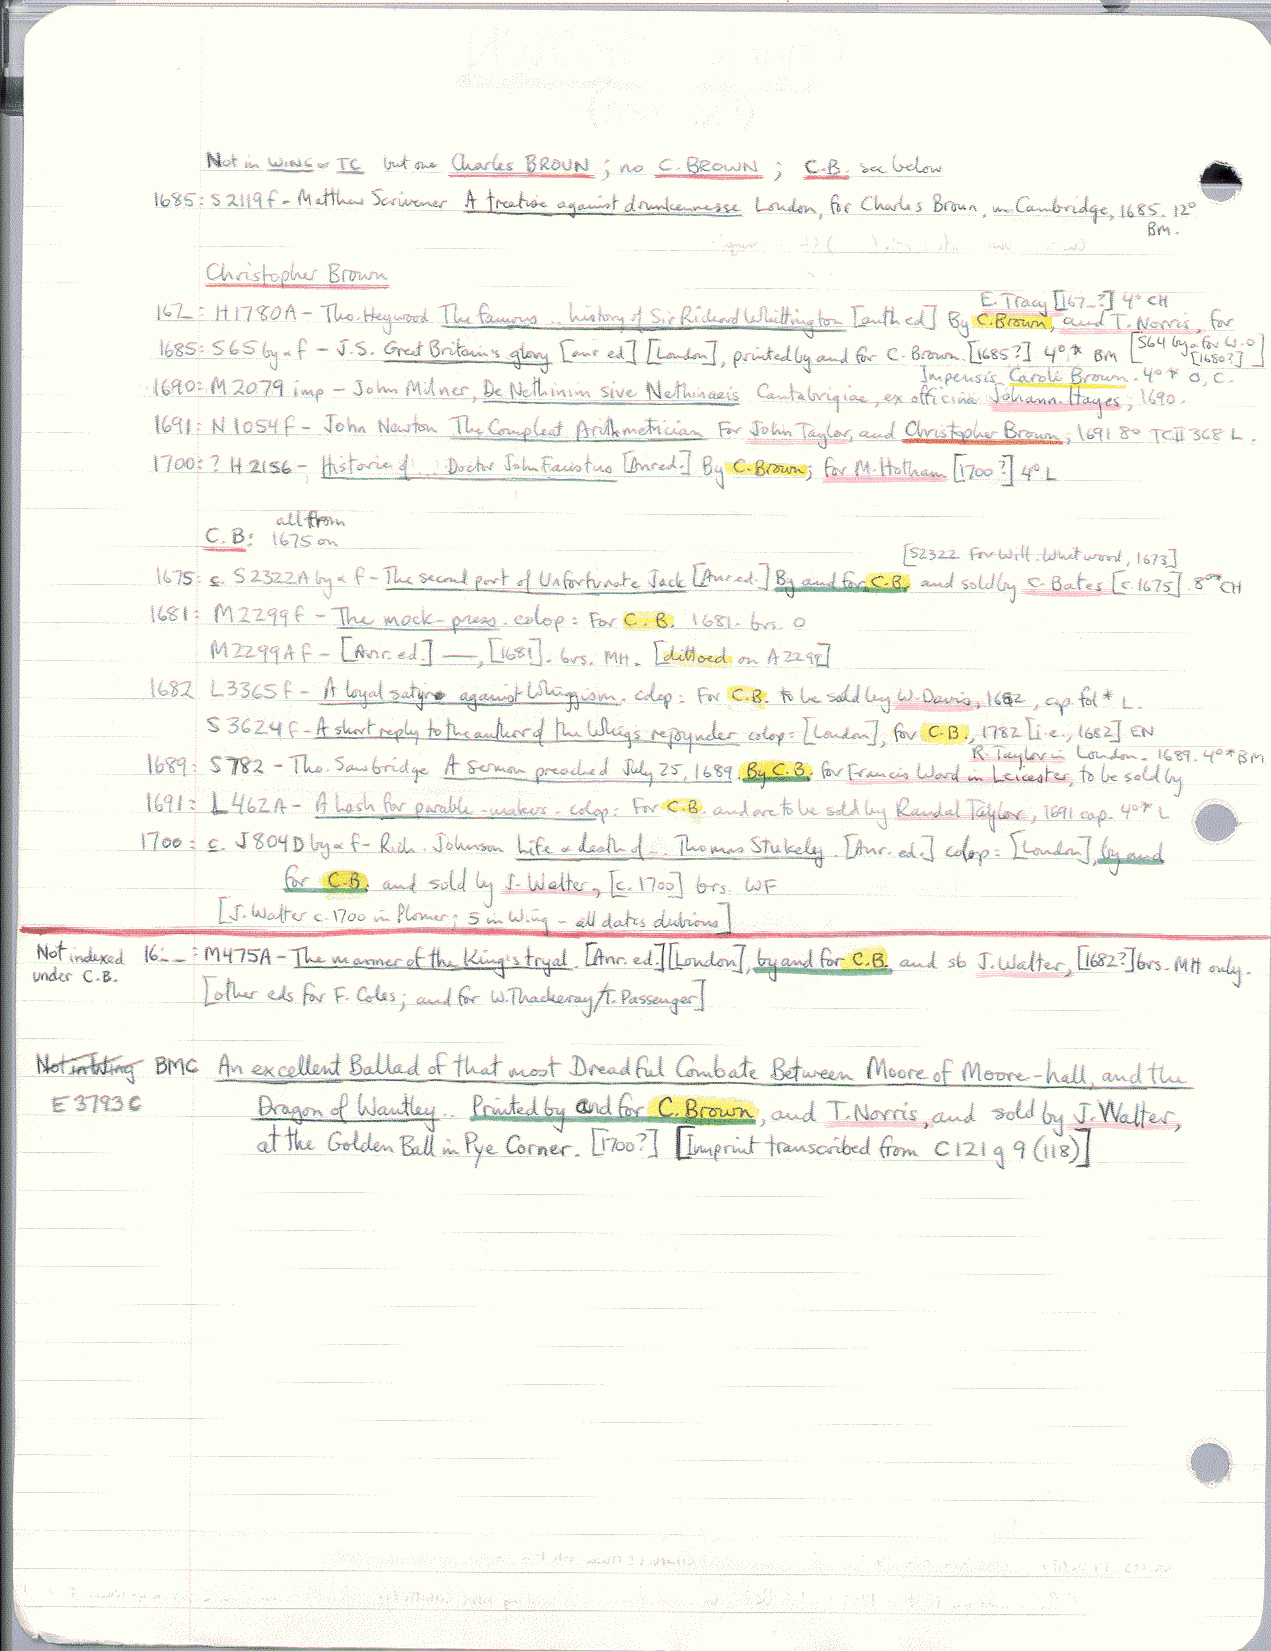 Not in WING or TC but one Charles BROUN; no C. BROWN; C.B. see below
1685: S2119 f - Matthew Scrivener A treatise against drunkennesse London, for Charles Broun, in Cambridge, 1685. 12°
BM.
Christopher Brown
E. Tracy [167-?] 4° CH
167_: H1780A - Tho. Heywood The famous .. history of Sir Richard Whittington [anth ed] By C. Brown, and T. Norris, for
1685: S65 by & f - J.S. Great Britain's glory [anr ed] [London], printed by and for C. Brown. [1685?] 4°* BM [S64 by & for W.O
[1680?]]
Impensis Caroli Brown. 4°* O, C.
1690: M2079 imp - John Milner, De Nethinim sive Nethinaeis Cantabrigiae, ex officina Johann. Hayes, 1690.
1691: N1054 f - John Newton The Compleat Arithmetrician For John Taylor, and Christopher Brown, 1691 8° TCII 368 L.
1700: ? H2156 - Historie of ... Doctor John Faustus [Anr ed.] By C. Brown; for M. Hotham [1700?] 4° L
all from
C.B: 1675 on
[S2322 For Will. Whitwood, 1673]
1675: c. S2322A by & f - The second part of Unfortunate Jack [Anr ed.] By and for C.B. and sold by C. Bates [c. 1675]. 8° CH
1681: M2299 f - The mock-press. colop: For C.B. 1681. brs. O
M2299A f - [Anr. ed.] —, [1681]. brs. MH. [dittoed on A2298]
1682 L3365 f - A loyal satyre against Whiggism. colop: For C.B. to be sold by W. Davis, 1682, cap. fol* L.
S3624 f - A short reply to the author of the Whigs rejoynder colop: [London], for C.B., 1782 [i.e., 1682] EN
R. Taylor in London. 1689. 4°* BM
1689: S782 - Tho. Sawbridge A sermon preached July 25, 1689. By C.B. for Francis Ward in Leicester, to be sold by
1691: L462A - A lash for parable-makers. colop: For C.B. and are to be sold by Randal Taylor, 1691 cap. 4°* L
1700: c. J804D by & f - Rich. Johnson Life & death of ... Thomas Stukely. [Anr. ed.] colop: [London], by and
for C.B. and sold by J. Walter, [c. 1700] brs. WF
[J. Walter c. 1700 in Plomer; 5 in Wing - all dates dubious]
Not indexed 16__: M475A - The manner of the King's tryal. [Anr. ed.] [London], by and for C.B. and sb J. Walter, [1682?] brs. MH only.
under C.B. [other eds for F. Coles; and for W. Thackeray/T. Passenger]
Not in Wing BMC An excellent Ballad of that most Dreadful Combate Between Moore of Moore-hall, and the
E3793C Dragon of Wantley .. Printed by and for C. Brown, and T. Norris, and sold by J. Walter,
at the Golden Ball in Pye Corner. [1700?] [Imprint transcribed from C 121 g 9 (118)]